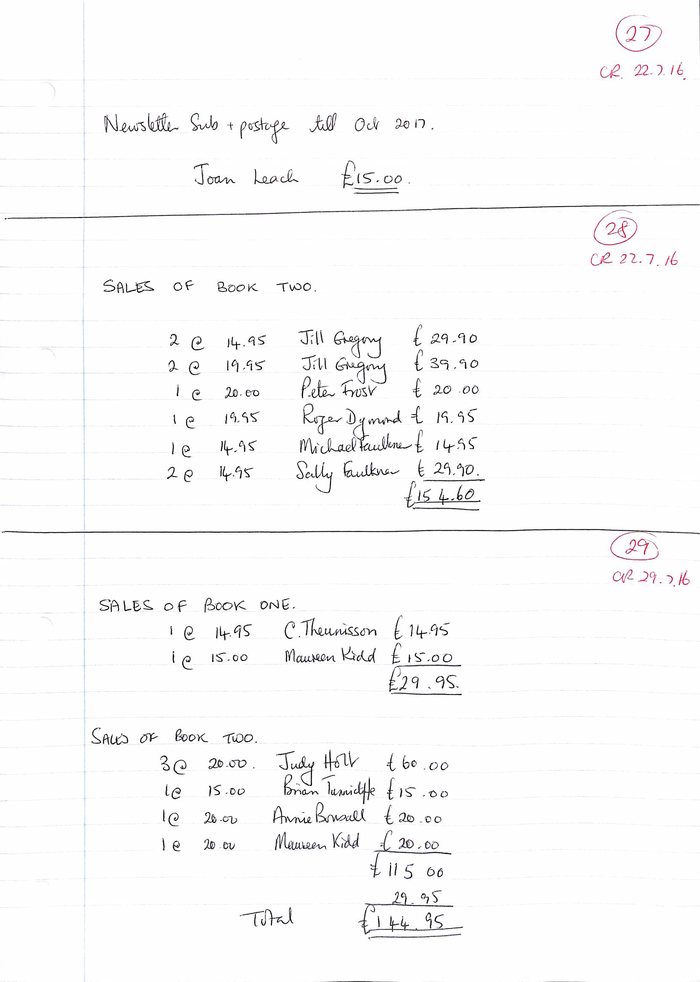 27
CR. 22.7.16.
Newsletter Sub + postage till Oct 2017.
Joan Leach £15.00.
28
CR 22.7.16
SALES OF BOOK TWO.
2 @ 14.95 Jill Gregory £ 29.90
2 @ 19.95 Jill Gregory £ 39.90
1 @ 20.00 Peter Frost £ 20.00
1 @ 19.95 Roger Dymond £ 19.95
1 @ 14.95 Michael Faulkner £ 14.95
2 @ 14.95 Sally Faulkner £ 29.90.
£154.60
29
CR 29.7.16
SALES OF BOOK ONE.
1 @ 14.95 C. Theunisson £ 14.95
1 @ 15.00 Maureen Kidd £ 15.00
£29.95.
SALES OF BOOK TWO.
3 @ 20.00. Judy Holt £ 60.00
1 @ 15.00 Brian £ 15.00
1 @ 20.00 Annie £ 20.00
1 @ 20.00 Maureen Kidd £ 20.00
£ 115 00
29.95
Total £144.95